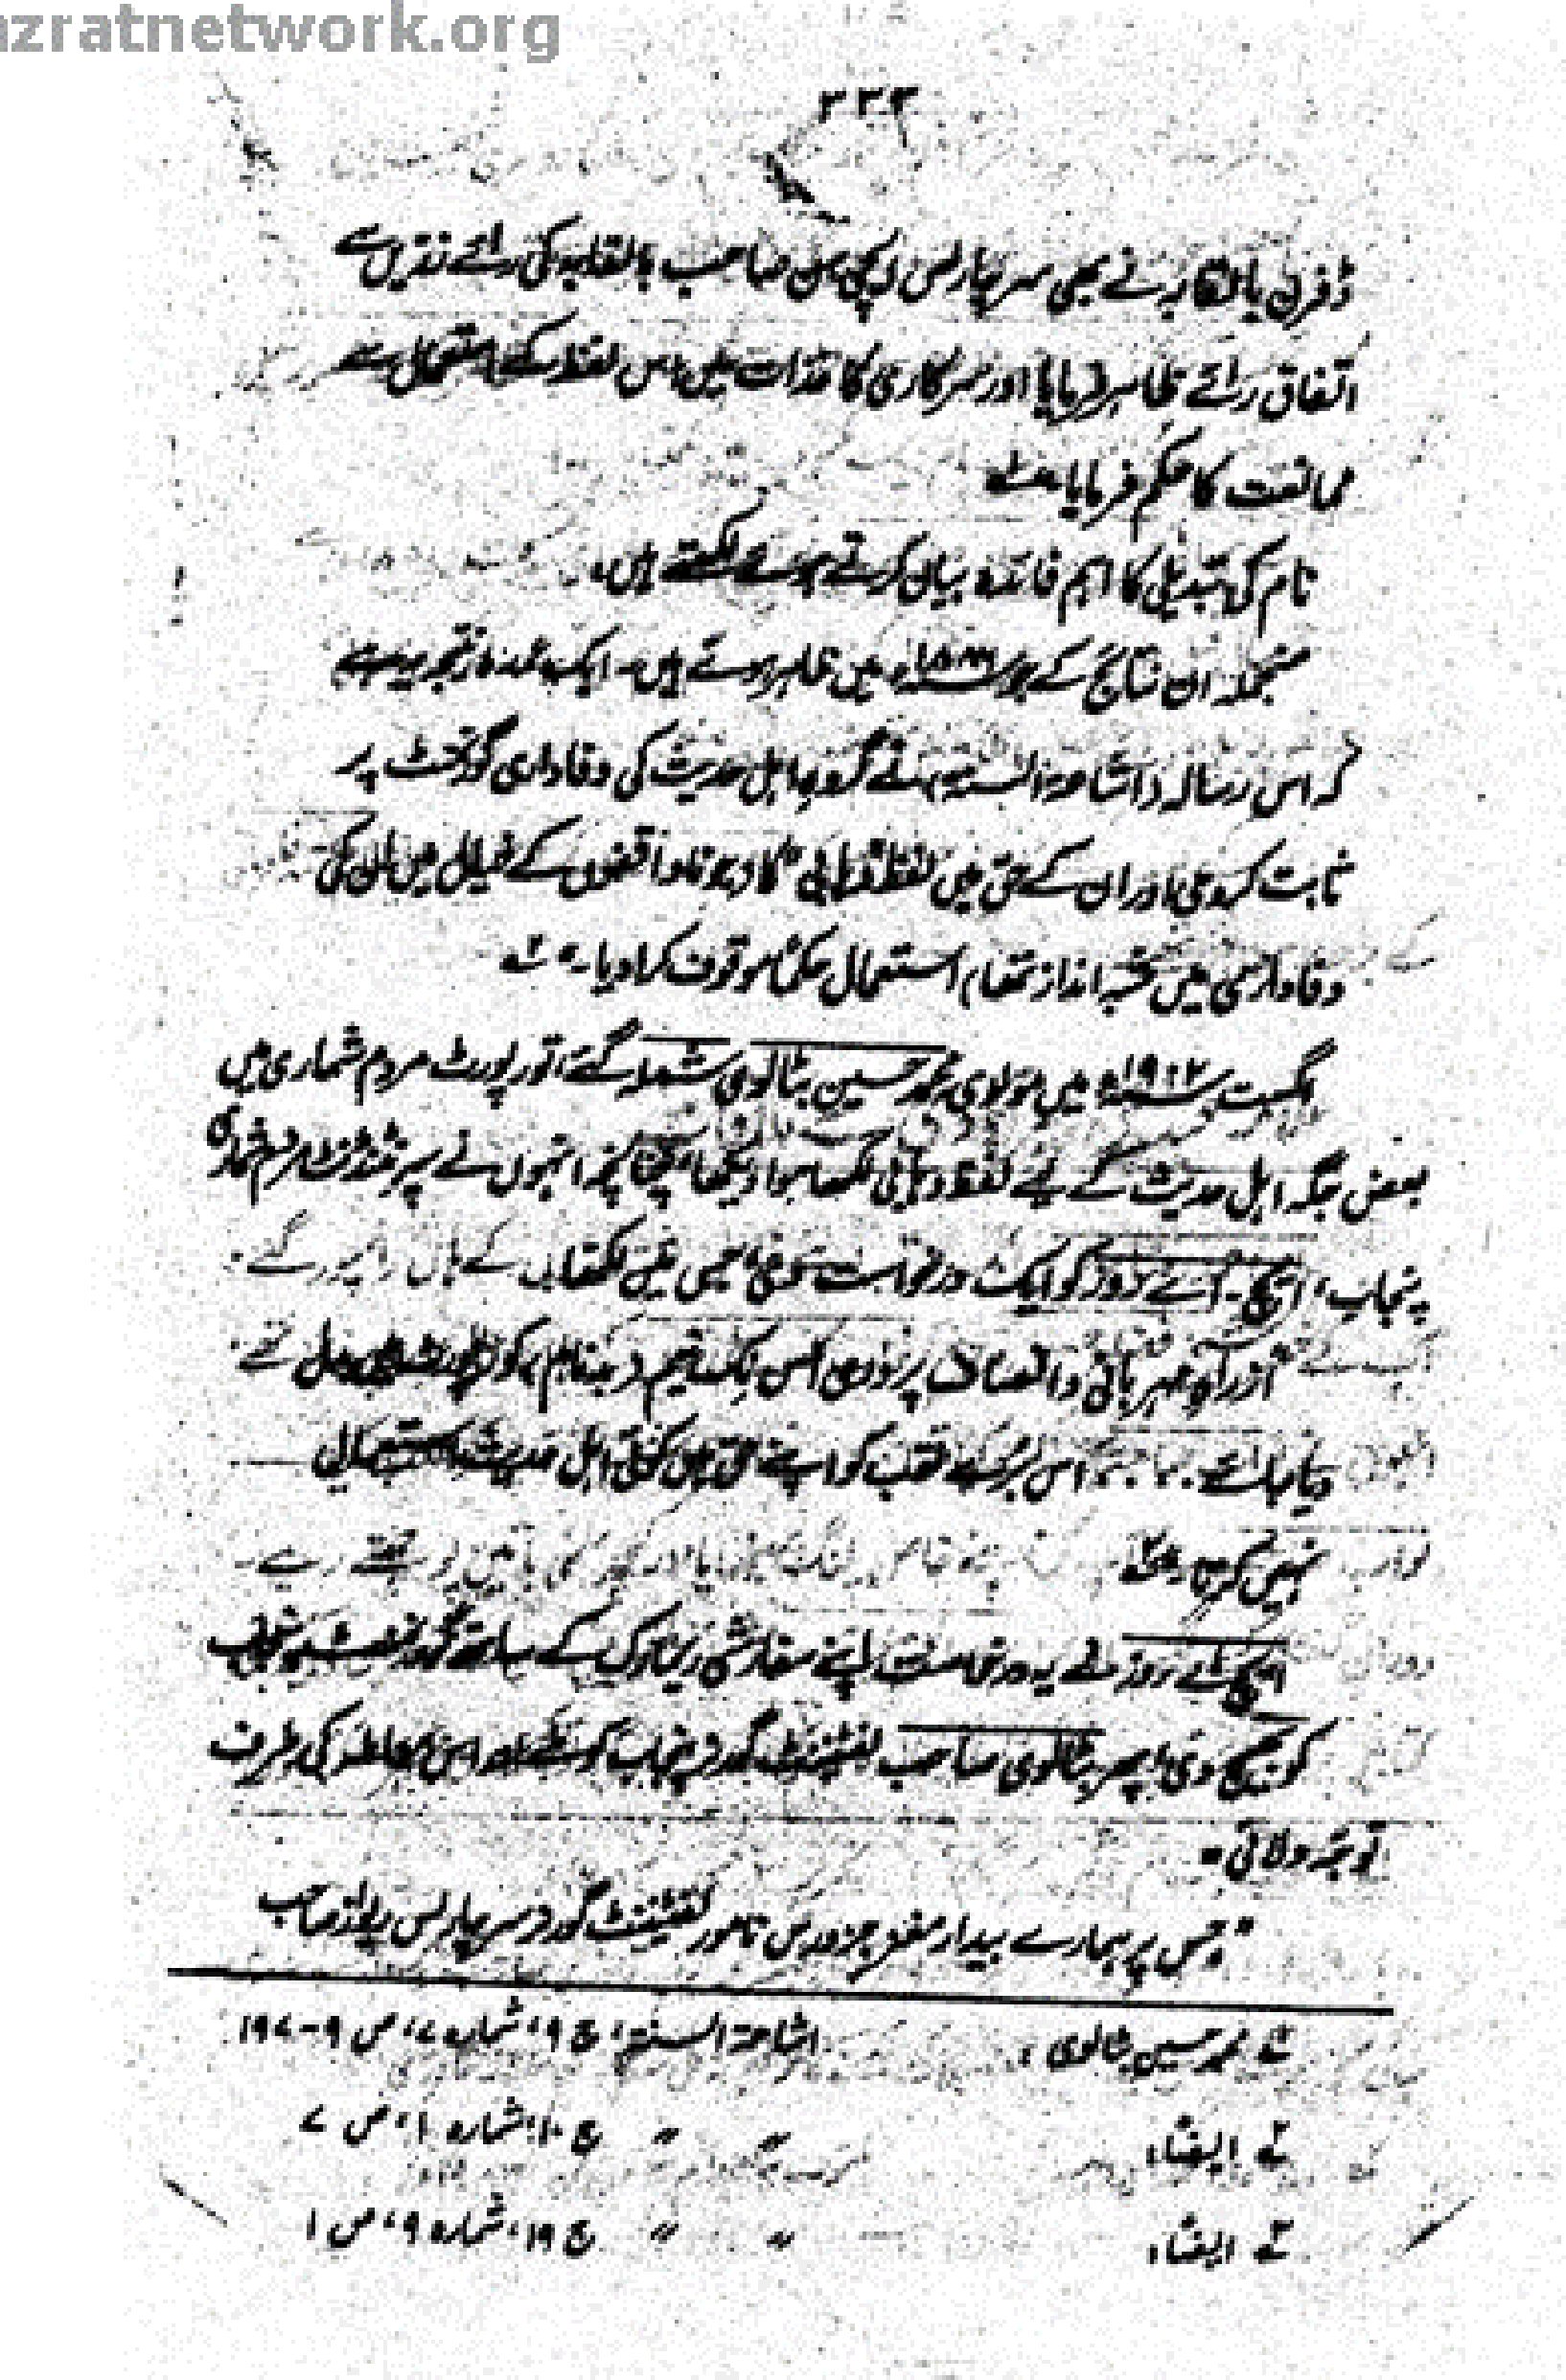 azratnetwork.org
۲۲۳
ڈفرن بالقابہ نے بھی سر چارلس ایچی سن صاحب بالقابہ کی رائے زریں سے
اتفاق رائے ظاہر فرمایا اور سرکاری کاغذات میں اس لفظ کے استعمال سے
ممانعت کا حکم فرمایا۔ لہ
نام کی تبدیلی کا اہم فائدہ بیان کرتے ہوئے لکھتے ہیں،
منجملہ ان نتائج کے جو ۱۸۸۶ء میں ظاہر ہوئے ہیں۔ ایک عمدہ نتیجہ یہ ہے
کہ اس رسالہ (اشاعۃ السنۃ) نے گروہ اہل حدیث کی وفاداری گورنمنٹ پر
ثابت کر دی اور ان کے حق میں لفظ وہابی کا (جو ناواقفوں کے خیال میں ان کی
وفاداری میں شبہ انداز تھا) استعمال حکماً موقوف کرا دیا۔ ۲ے
اگست ۱۹۰۲ء میں مولوی محمد حسین بٹالوی شملہ گئے، تو رپورٹ مردم شماری میں
بعض جگہ اہل حدیث کے لیے لفظ وہابی لکھا ہوا دیکھا، چنانچہ انہوں نے سپرنٹنڈنٹ مردم شماری
پنجاب، ایچ۔ اے روز کو ایک درخواست دی، جس میں لکھا،
ازراہ مہربانی و انصاف پروری اس نک نیم (بدنام) کو رپورٹ میں بدل
دیا جائے اس بُرے لقب کو اپنے حق میں کوئی اہل حدیث استعمال
نہیں کرتا۔ ۳ے
ایچ اے روز نے یہ درخواست اپنے سفارشی ریمارک کے ساتھ گورنمنٹ پنجاب
کو بھیج دی، پھر بٹالوی صاحب لفٹیننٹ گورنر پنجاب کو ملے اور اس معاملہ کی طرف
توجہ دلائی۔
"جس پر ہمارے بیدار مغز جزورس نامور لفٹیننٹ گورنر سر چارلس ریواز صاحب
۱ے محمد حسین بٹالوی، اشاعۃ السنۃ، ج ۹، شمارہ ۷، ص ۹-۱۹۷
۲ے ایضاً، " " ج ۱۰، شمارہ ۱، ص ۷
۳ے ایضاً، " " ج ۱۹، شمارہ ۹، ص ۱